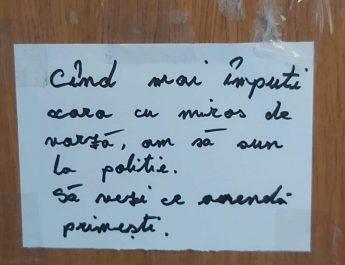 Cînd mai împuți
scara cu miros de
varză, am să sun
la politie.
Să vezi ce amendă
primești.